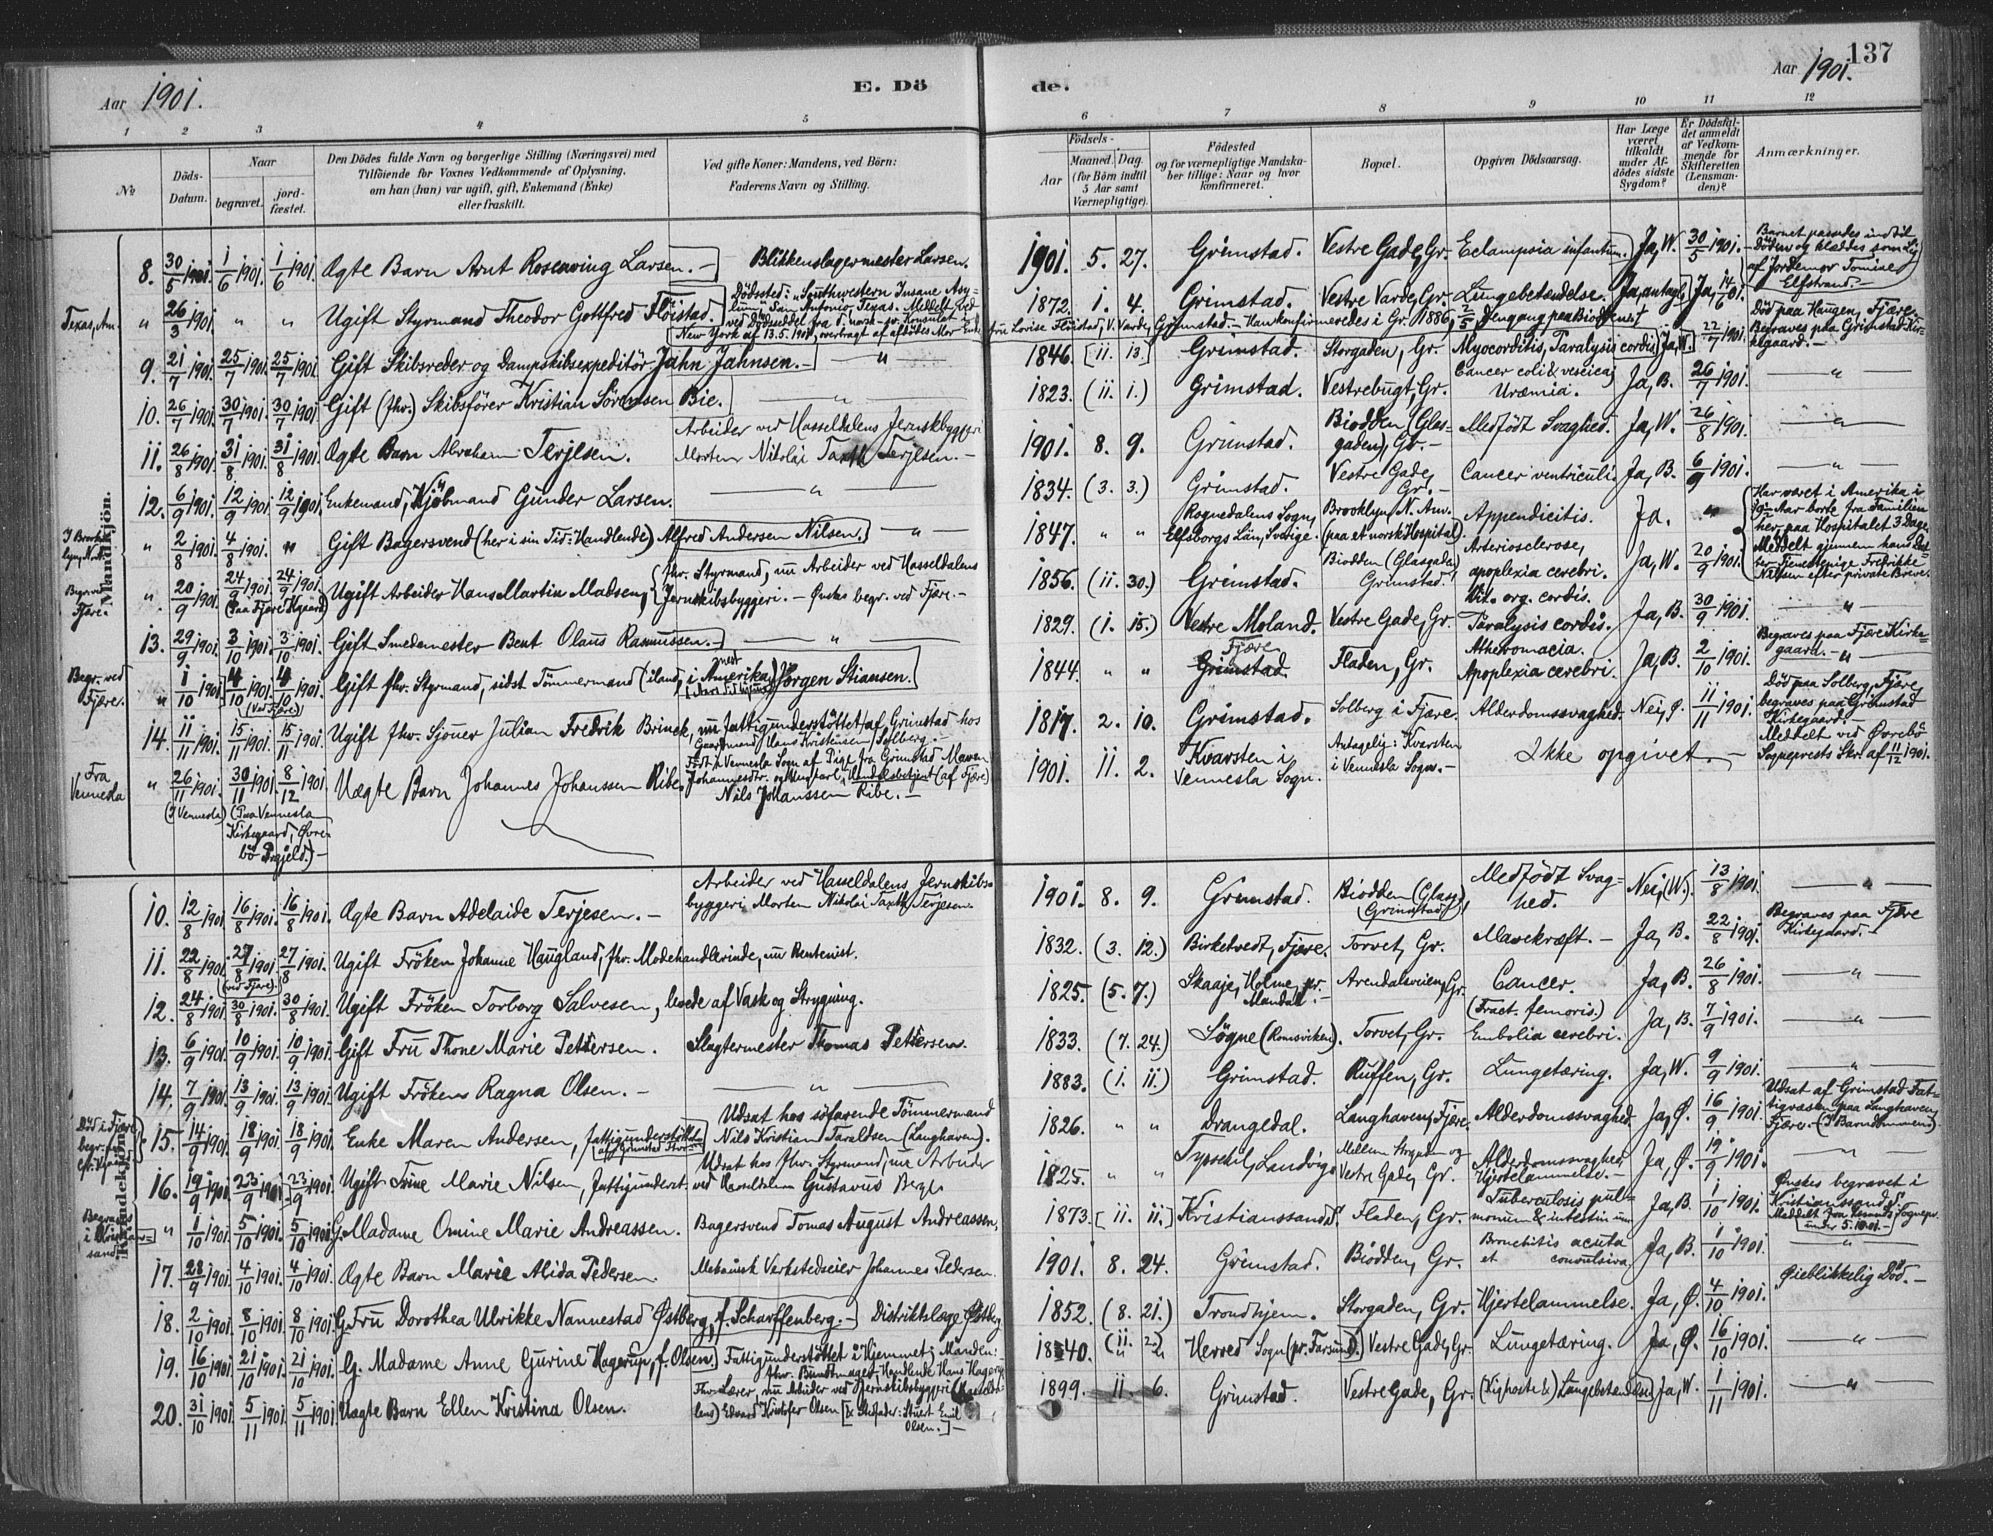 137
Aar 1901.
E. Dö
de.
Aar 1901.
1 2 3 4 5 6 7 8 9 10 11 12
No
Döds-
Datum.
Naar
begravet.
jord-
fæstet.
Den Dödes fulde Navn og borgerlige Stilling (Næringsvei) med
Tilföiende for Voxnes Vedkommende af Oplysning,
om han (hun) var ugift, gift, Enkemand (Enke)
eller fraskilt.
Ved gifte Koner: Mandens, ved Börn:
Faderens Navn og Stilling.
Födsels-
Aar
Maaned. Dag.
(for Börn indtil
5 Aar samt
Værnepligtige).
Födested
og for værnepligtige Mandska-
ber tillige: Naar og hvor
konfirmeret.
Bopæl.
Opgiven Dödsaarsag.
Har Læge
været
tilkaldt
under Af-
dödes sidste
Sygdom?
Er Dödsfal-
det anmeldt
af Vedkom-
mende for
Skifteretten
(Lensman-
den)?
Anmærkninger.
Mandkjön.
8. 30/5 1901 1/6 1901 1/6 1901. Ægte Barn Arnt Rosenving Larsen. — Blikkenslagermester Larsen. 1901. 5. 27. Grimstad. Vestre Gade, Gr. Eclampsia infantum. Ja, W. 30/5 1901.
Barnet passedes indtil
Döden og klæddes som Lig
af Jordemor Tomine
Elfstrand. —
Texas, Am.
" 26/3 1901. " " Ugift Styrmand Theodor Gottfred Flöistad.
Dödssted: "Southwestern Insane Asy-
lum" San Antonio, Texas. Meddelt
New York af 13.5.1901,
1872. 1. 4. Grimstad. Vestre Varde, Gr. Lungebetændelse. Ja, antagl. Ja, 14/6 01.
Lovise Flöistad, V. Varde, Grimstad. — Han konfirmeredes i Gr. 1886,
9. 21/7 1901. 25/7 1901. 25/7 1901. Gift Skibsreder og Dampskibsexpeditör Jahn Jahnsen. — " 1846. [11. 13.] Grimstad. Storgaden, Gr. Myocorditis, Paralysis cordis. Ja, W. 22/7 1901.
Död paa Haugen, Fjære.
Begraves paa Grimstad Kir-
kegaard. —
10. 26/7 1901. 30/7 1901. 30/7 1901. Gift (fhv.) Skibsförer Kristian Sörensen Bie. " 1823. (11. 1.) Grimstad. Vestrebugt, Gr. Cancer coli & vesicæ
Uræmia. Ja, B. 26/7 1901. "
11. 26/8 1901. 31/8 1901. 31/8 1901. Ægte Barn Abraham Terjesen.
Arbeider ved Hasseldalens Jernskbyggeri
Morten Nikolai Taxth Terjesen. —
1901. 8. 9. Grimstad. Biodden (Glas-
gaden), Gr. — Medfödt Svaghed. Ja, W. 26/8 1901. "
12. 6/9 1901. 12/9 1901. 12/9 1901. Enkemand, Kjöbmand Gunder Larsen. " 1834. (3. 3.) Grimstad. Vestre Gade,
Gr. — Cancer ventriculi. Ja, B. 6/9 1901. "
I Brook-
lyn, N. Am.
" 2/8 1901. 4/8 1901. " Gift Bagersvend (her i sin Tid: Handlende) Alfred Andersen Nilsen. " 1847. " " Rognedalens Sogn,
Elfsborgs Län, Sverige. Brooklyn, N. Am.
(paa et norsk Hospital). Appendicitis. Ja. "
Har været i Amerika i
9½ Aar borte fra Familien
her, paa Hospitalet 3 Dage.
Meddelt gjennem hans Dat-
ter Tjenestepige Fredrikke
Nilsen efter private Breve.
Begr. ved
Fjære.
" 20/9 1901. 24/9 1901. 24/9 1901. (Paa Fjære Kgaard) Ugift Arbeider Hans Martin Madsen,
fhv. Styrmand, nu Arbeider ved Hasseldalens
Jernskibsbyggeri. — Önskes begr. ved Fjære. —
1856. (11. 30.) Grimstad. Biodden (Glasgaden)
Grimstad. Arteriosclerose,
apoplexia cerebri. Ja, W. 20/9 1901.
13. 29/9 1901. 3/10 1901. 3/10 1901. Gift Smedemester Bent Olaus Rasmussen. — " 1829. (1. 15.) Vestre Moland. Vestre Gade, Gr. Vit. org. cordis.
Paralysis cordis. Ja, B. 30/9 1901. "
Begr. ved
Fjære.
" 1/10 1901. 4/10 1901. 4/10 1901. (Ved Fjære) Gift fhv. Styrmand, sidst Tömmermand (iland, i Amerika) Jörgen Stiansen. 1844. " " Fjære
Grimstad. Fladen, Gr. Atheromacia.
Apoplexia cerebri. Ja, B. 2/10 1901.
Begraves paa Fjære Kirke-
gaard. — "
14. 11/11 1901. 15/11 1901. 15/11 1901. Ugift fhv. Sjöner Julian Fredrik Brinck, nu fattigunderstöttet af Grimstad hos
Gaardmand Hans Kristensen Solberg. —
1817. 2. 10. Grimstad. Solberg i Fjære. Alderdomssvaghed. Nei, Ø. 11/11 1901.
Död paa Solberg, Fjære,
begraves paa Grimstad
Kirkegaard. —
Fra
Vennesla
" 26/11 1901. (I Vennesla) 30/11 1901. 8/12 1901. Uægte Barn Johannes Johanssen Ribe.
Födt i Vennesla Sogn af Pige fra Grimstad Maren
Johannesdtr. og Ungkarl Handelsbetjent (af Fjære)
Nils Johanssen Ribe. —
(Paa Vennesla
Kirkegaard, Øvre-
bö Prgjeld.) —
1901. 11. 2. Kvarsten i
Vennesla Sogn. Antagelig: Kvarsten
i Vennesla Sogn. — Ikke opgivet. —
Meddelt ved Øvrebö
Sogneprests Skr. af 11/12 1901.
Kvindekjön.
10. 12/8 1901. 16/8 1901. 16/8 1901. Ægte Barn Adelaide Terjesen. —
Arbeider ved Hasseldalens Jernskibs-
byggeri Morten Nikolai Taxth Terjesen.
1901. 8. 9. Grimstad. Biodden (Glasg.)
(Grimstad) Medfödt Svag-
hed. Nei, (W.) 13/8 1901. "
11. 22/8 1901. 27/8 1901. (ved Fjære) 27/8 1901. Ugift Fröken Johanne Haugland, fhv. Modehandlerinde, nu Rentenist. 1832. (3. 12.) Birketvedt, Fjære. Torvet, Gr. Mavekræft. — Ja, B. 22/8 1901.
Begraves paa Fjære
Kirkegaard. —
12. 24/8 1901. 30/8 1901. 30/8 1901. Ugift Fröken Torborg Salvesen, levede af Vask og Strygning. 1825. (5. 7.) Skaaje, Holme, pr.
Mandal. — Arendalsveien, Gr. Cancer. Ja, B. 26/8 1901. "
13. 6/9 1901. 10/9 1901. 10/9 1901. Gift Fru Thone Marie Pettersen. Slagtermester Thomas Pettersen. 1833. (7. 24.) Sögne (Romsviken). Torvet, Gr. (Fract. femoris.)
Embolia cerebri. Ja, B. 7/9 1901. "
14. 7/9 1901. 13/9 1901. 13/9 1901. Ugift Fröken Ragna Olsen. — " 1883. (1. 11.) Grimstad. Ruffen, Gr. Lungetæring. Ja, W. 9/9 1901. "
Död i Fjære,
begr. paa
15. 14/9 1901. 18/9 1901. 18/9 1901. Enke Maren Andersen, fattigunderstöttet
af Grimstad
Udsat hos söfarende Tömmermand
Nils Kristian Taraldsen (Langhaven).
1826. " " Drangedal. Langhaven, Fjære. Alderdomssvaghed. Ja, Ø. 16/9 1901.
Udsat af Grimstad Fat-
tigvæsen paa Langhaven,
Fjære.
16. 19/9 1901. 23/9 1901. 23/9 1901. Ugift Trine Marie Nilsen, fattigunderst.
Udsat hos fhv. Styrmand, nu Arbeider
ved Hasseldalen Gustavus Berge
1825. " " Landvig. Mellem Strygen og
Vestre Gade, Gr. Alderdomssvaghed,
Hjertelammelse. Ja, Ø. 19/9 1901. "
Begraves
i Kristian-
sand.
" 1/10 1901. 5/10 1901. 5/10 1901. G. Madame Omine Marie Andreassen. Bagersvend Tomas August Andreassen. 1873. [11. 11.] Kristianssand. Fladen, Gr. Tuberculosis pul-
monum & intestinum Ja, B. 1/10 1901.
Önskes begravet i
Kristianssand.
under 5.10.01. —
17. 28/9 1901. 4/10 1901. 4/10 1901. Ægte Barn Marie Alida Pedersen. Mekanisk Verkstedseier Johannes Pedersen. 1901. 8. 24. Grimstad. Biodden, Gr. Bronchitis acuta
et convulsiva Ja, B. 1/10 1901. "
18. 2/10 1901. 8/10 1901. 8/10 1901. G. Fru Dorothea Ulrikke Nannestad Østberg, f. Scharffenberg. — Distriktslæge Østberg. 1852. (8. 21.) Trondhjem. Storgaden, Gr. Hjertelammelse. Ja, Ø. 4/10 1901. Øieblikkelig Död. —
19. 16/10 1901. 21/10 1901. 21/10 1901. G. Madame Anne Gurine Hagerup, f. Olsen.
Fattigunderstöttet i Hjemmet; Manden:
fhv. Bundtmager, Handlende Hans Hagerup.
1840. (11. 2) Herred Sogn (pr. Farsund). Vestre Gade, Gr. Lungetæring. Ja, Ø. 16/10 1901. "
20. 31/10 1901. 5/11 1901. 5/11 1901. Uægte Barn Ellen Kristina Olsen.
Fhv. Lærer, nu Arbeider ved Jernskibsbyggeri (Hasselda-
lens) Edvard Kristofer Olsen [& Stiffader: Stuert Emil
Olsen.] —
1899. 11. 6. Grimstad. Vestre Gade, Gr. (Kighoste &) Lungebetændelse Ja, W. 1/11 1901. "